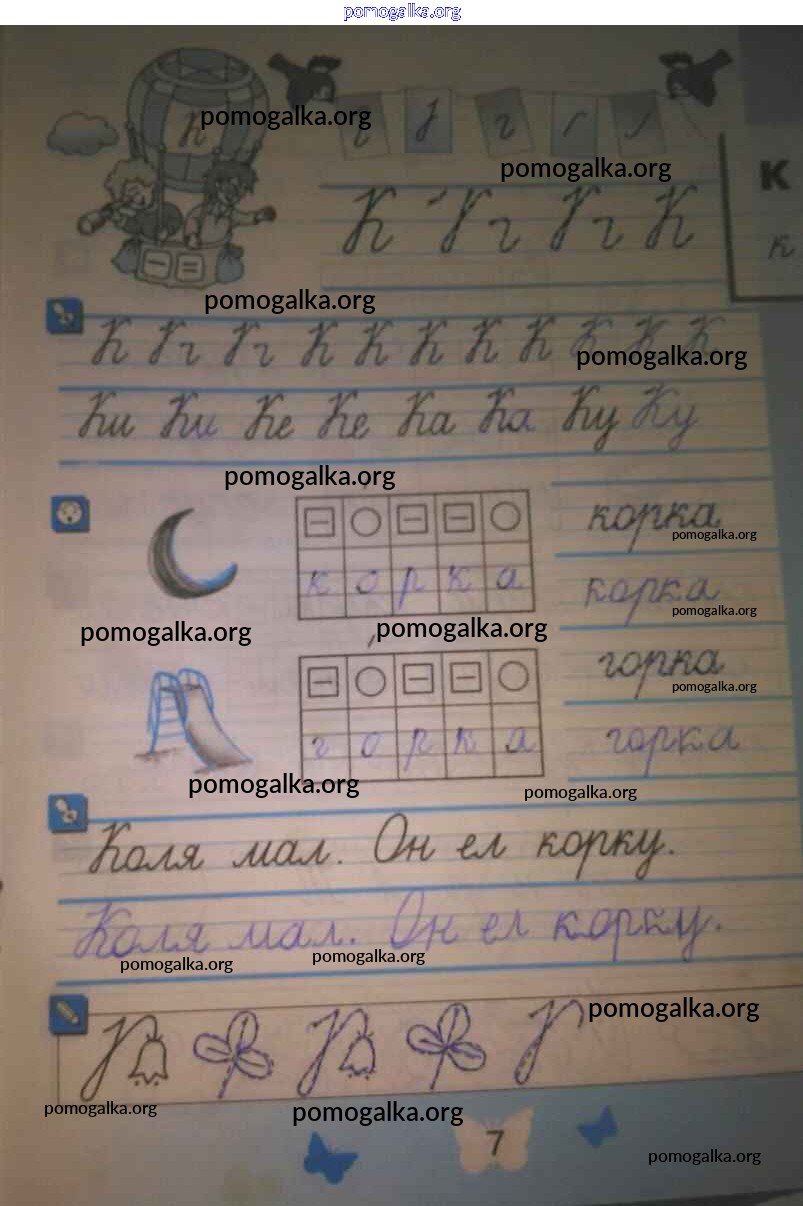 pomogalka.org
pomogalka.org
pomogalka.org
К
К К
к
pomogalka.org
К К К К К К К К
pomogalka.org
Ки Ки Ке Ке Ка Ка Ку Ку
pomogalka.org
корка
pomogalka.org
к о р к а
корка
pomogalka.org
pomogalka.org
pomogalka.org
горка
pomogalka.org
г о р к а
горка
pomogalka.org
pomogalka.org
Коля мал. Он ел корку.
Коля мал. Он ел корку.
pomogalka.org
pomogalka.org
pomogalka.org
pomogalka.org
pomogalka.org
7
pomogalka.org